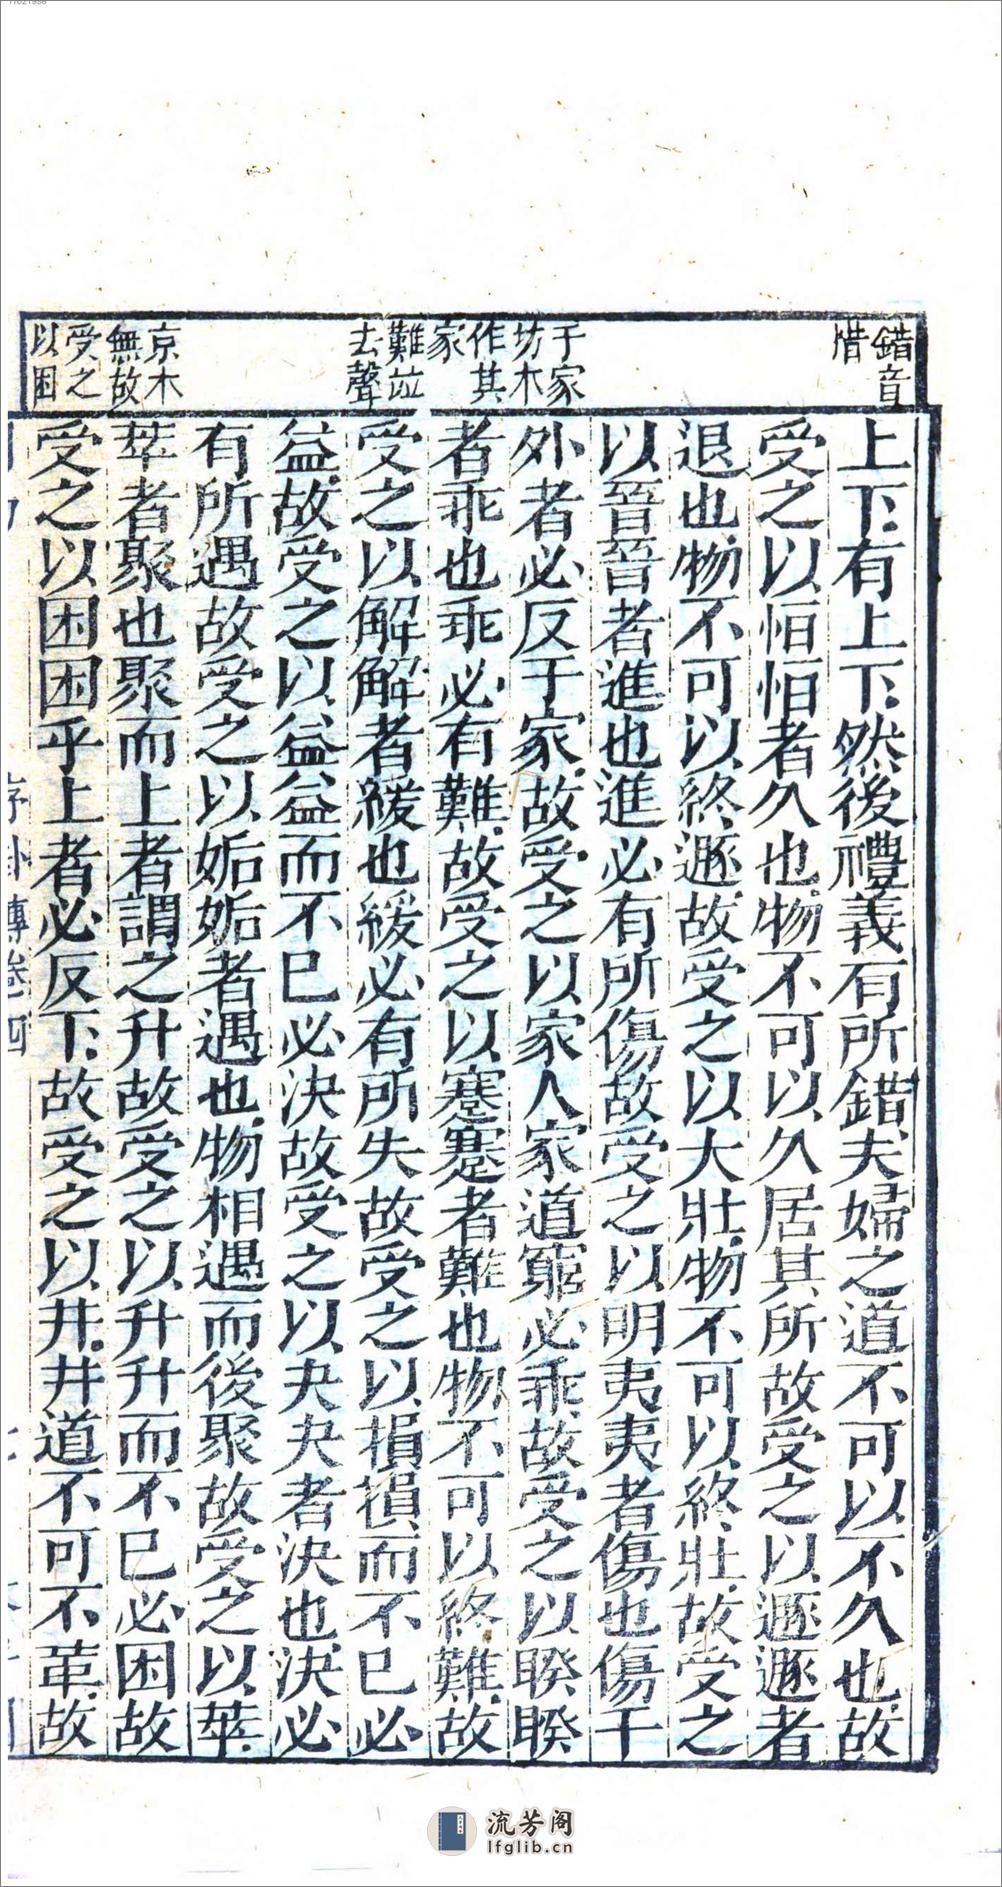 11021998
錯音
惜
于家
坊木
作其
家
難竝
去聲
京木
無故
受之
以困
上下有上下然後禮義有所錯夫婦之道不可以不久也故
受之以恒恒者久也物不可以久居其所故受之以遯遯者
退也物不可以終遯故受之以大壯物不可以終壯故受之
以晉晉者進也進必有所傷故受之以明夷夷者傷也傷于
外者必反于家故受之以家人家道窮必乖故受之以睽睽
者乖也乖必有難故受之以蹇蹇者難也物不可以終難故
受之以解解者緩也緩必有所失故受之以損損而不已必
益故受之以益益而不已必決故受之以夬夬者決也決必
有所遇故受之以姤姤者遇也物相遇而後聚故受之以萃
萃者聚也聚而上者謂之升故受之以升升而不已必困故
受之以困困乎上者必反下故受之以井井道不可不革故
序卦傳卷四
流芳阁
lfglib.cn